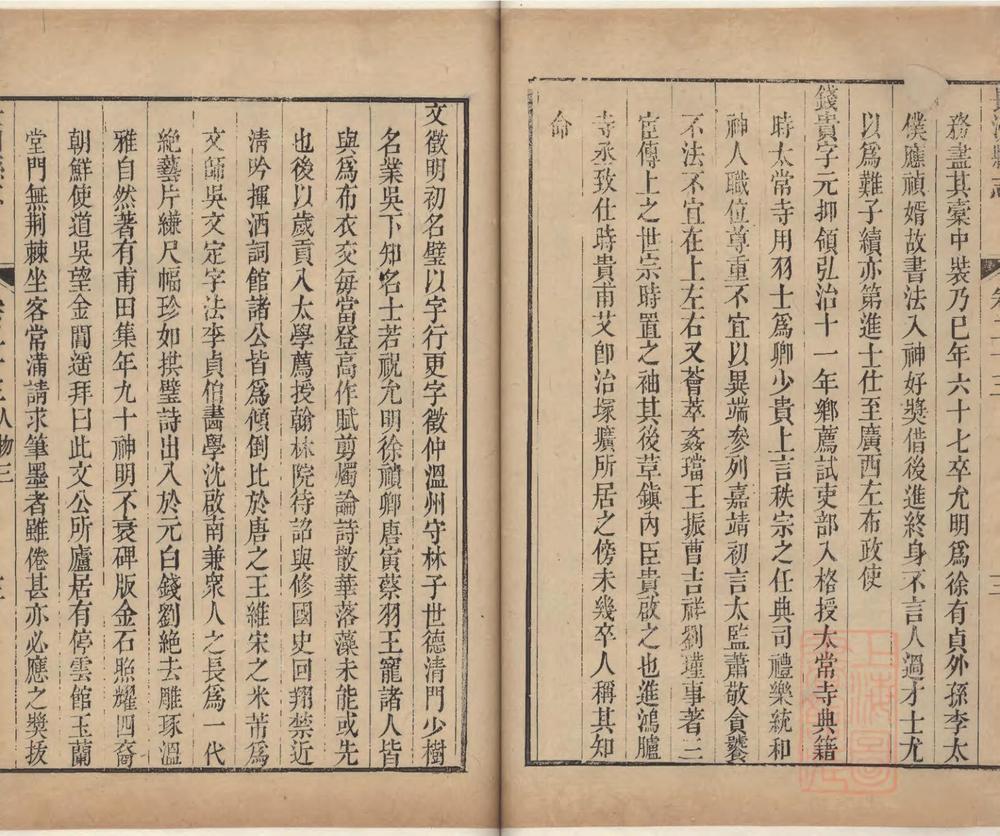 務盡其槖中裝乃已年六十七卒允明爲徐有貞外孫李太
僕應禎婿故書法入神好奬借後進終身不言人過才士尤
以爲難子續亦第進士仕至廣西左布政使
錢貴字元抑領弘治十一年鄉薦試吏部入格授太常寺典籍
時太常寺用羽士爲卿少貴上言秩宗之任典司禮樂統和
神人職位尊重不宜以異端參列嘉靖初言太監蕭敬貪饕
不法不宜在上左右又薈萃姦璫王振曹吉祥劉瑾事著三
宦傳上之世宗時置之袖其後革鎮內臣貴啟之也進鴻臚
寺丞致仕時貴甫艾卽治塚壙所居之傍未幾卒人稱其知
命
文徵明初名璧以字行更字徵仲溫州守林子世德清門少樹
名業吳下知名士若祝允明徐禎卿唐寅蔡羽王寵諸人皆
與爲布衣交每當登高作賦剪燭論詩散華落藻未能或先
也後以歲貢入太學薦授翰林院待詔與修國史回翔禁近
清吟揮洒詞館諸公皆爲傾倒比於唐之王維宋之米芾爲
文師吳文定字法李貞伯畵學沈啟南兼衆人之長爲一代
絶藝片縑尺幅珍如拱璧詩出入於元白錢劉絶去雕琢溫
雅自然著有甫田集年九十神明不衰碑版金石照耀四裔
朝鮮使道吳望金閶遥拜曰此文公所廬居有停雲館玉蘭
堂門無荆棘坐客常滿請求筆墨者雖倦甚亦必應之奬拔
人物三